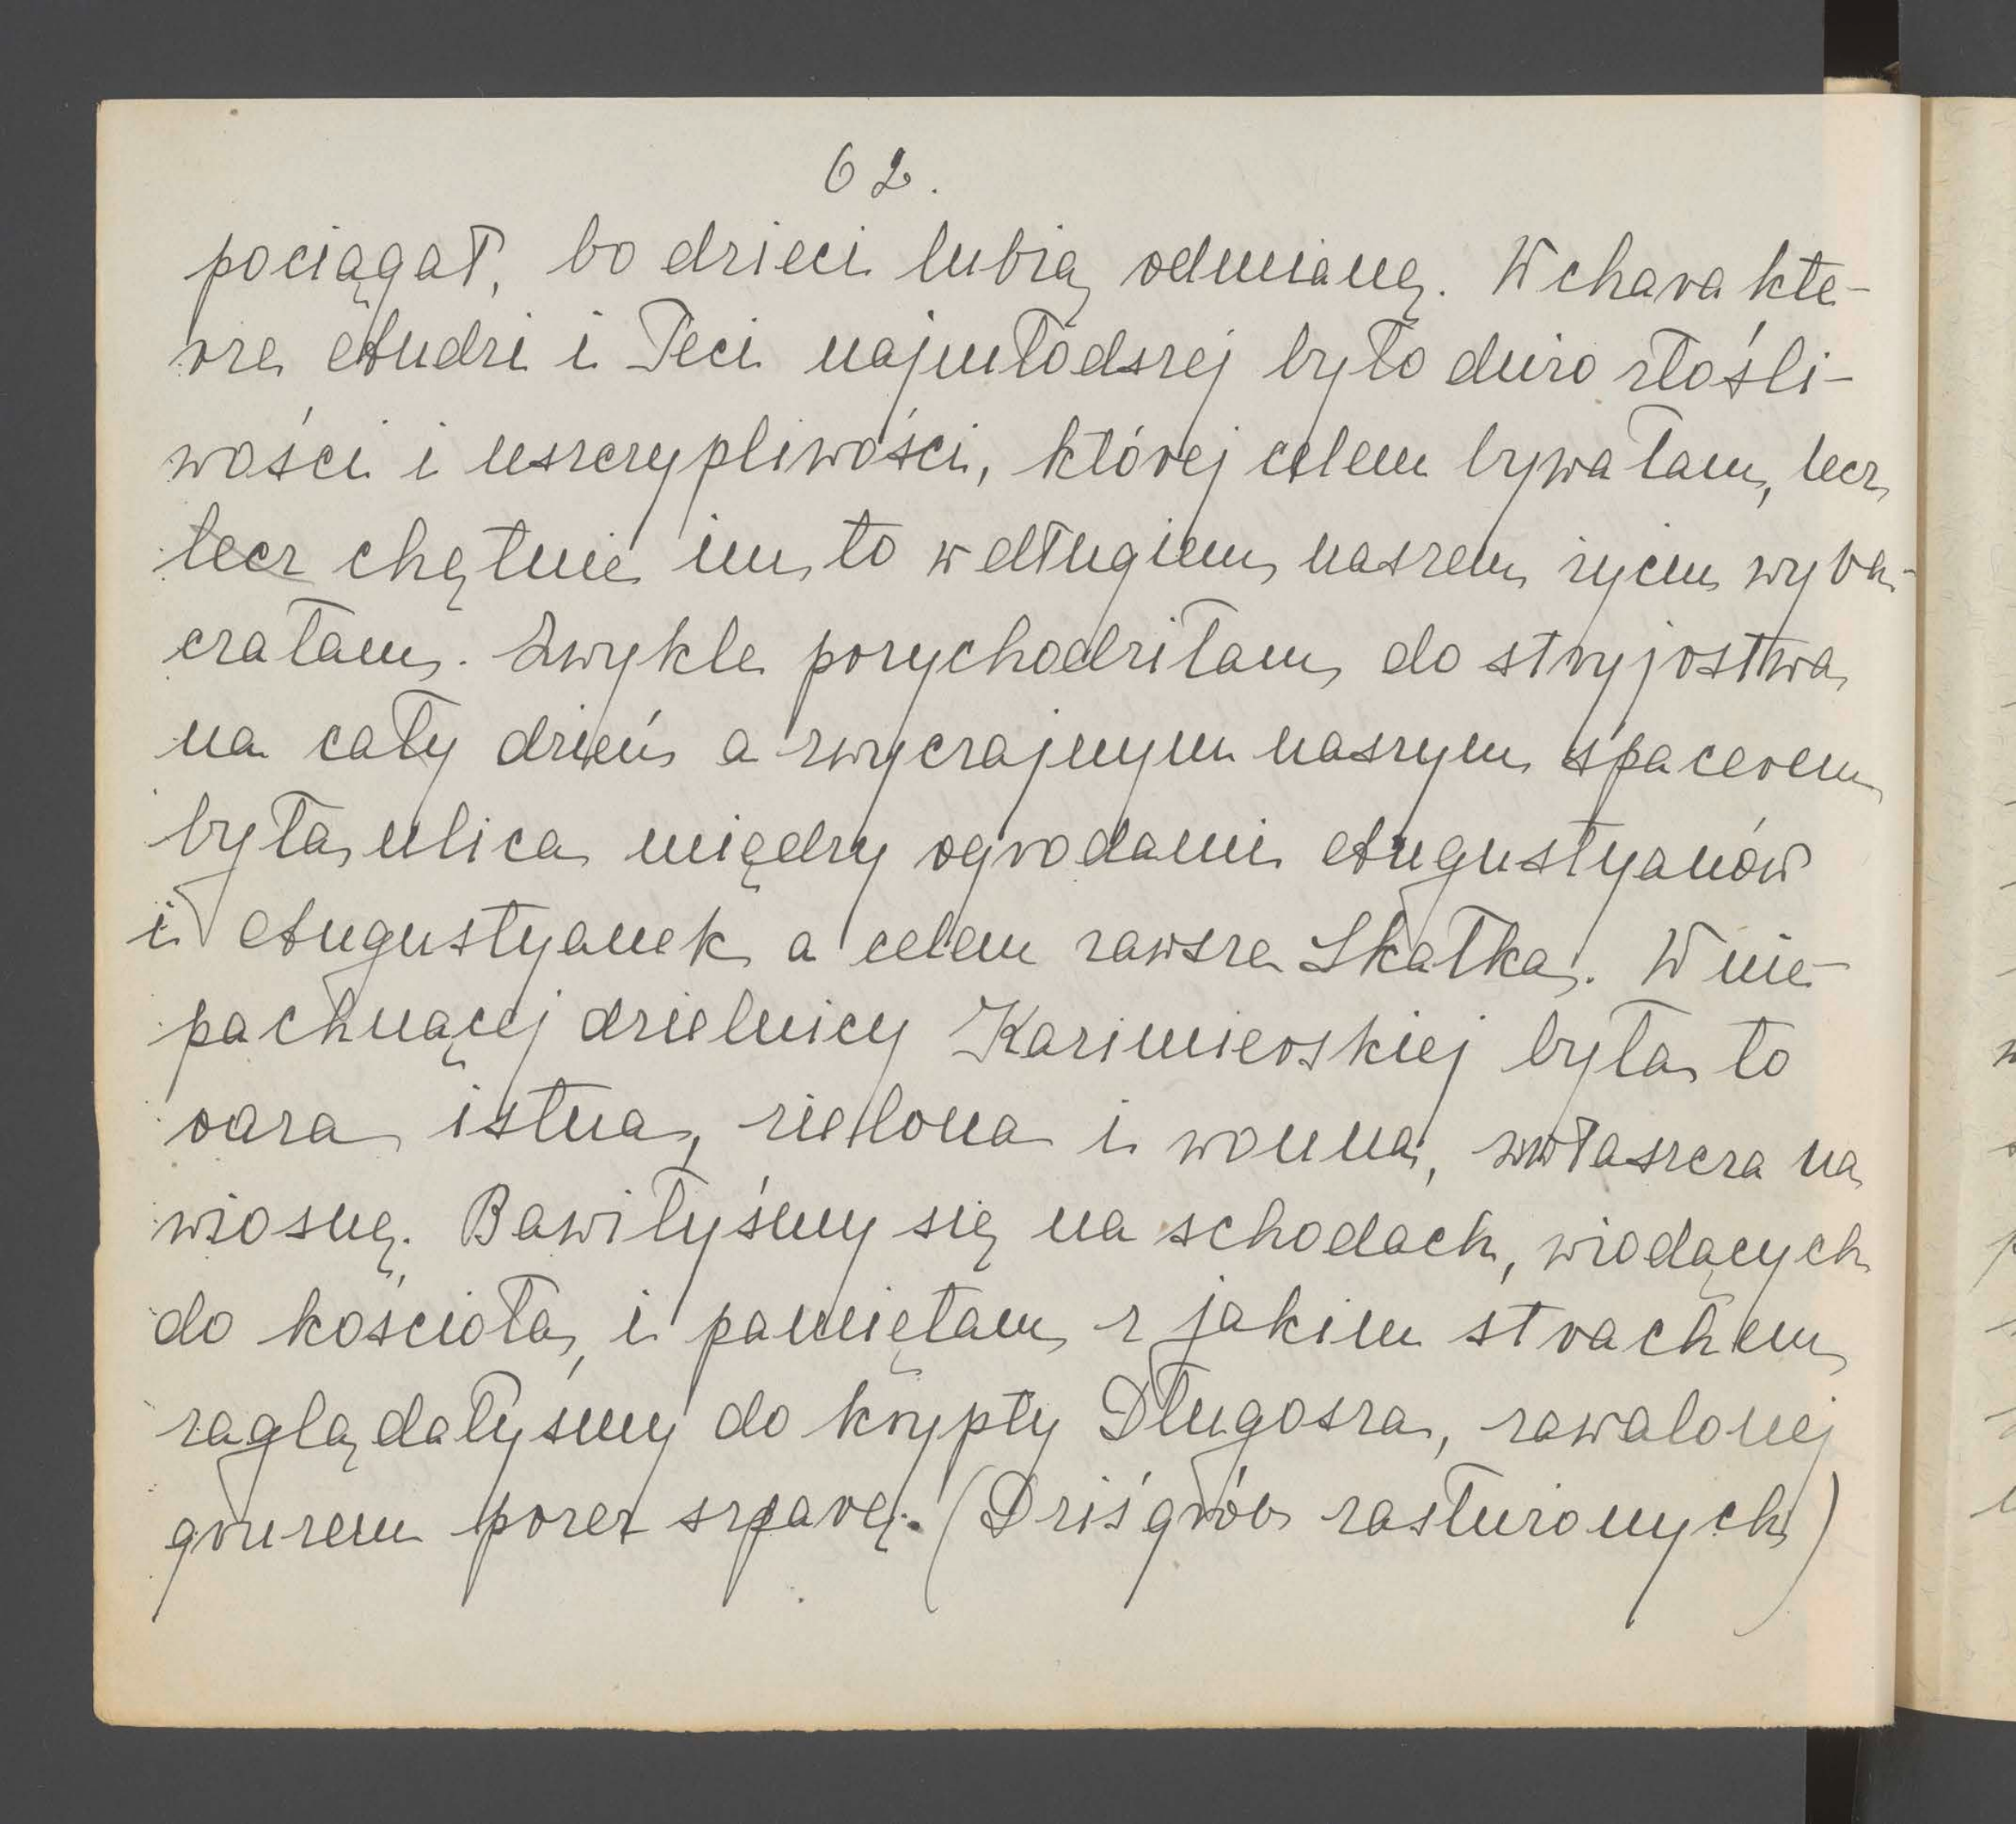 62.
pociągał, bo dzieci lubią odmianę. W charakte-
rze Andzi i Teci najmłodszej było dużo złośli-
wości i uszczypliwości, której celem bywałam, lecz
lecz chętnie im to w długiem naszem życiu wyba-
czałam. Zwykle przychodziłam do stryjostwa
na cały dzień a zwyczajnym naszym spacerem
była ulica między ogrodami Augustyanów
i Augustyanek a celem zawsze Skałka. W nie-
pachnącej dzielnicy Kazimierskiej była to
oaza istna, zielona i wonna, zwłaszcza na
wiosnę. Bawiłyśmy się na schodach, wiodących
do kościoła, i pamiętam z jakim strachem
zaglądałyśmy do krypty Długosza, zawalonej
gruzem przez szparę. (Dziś grób zasłużonych)